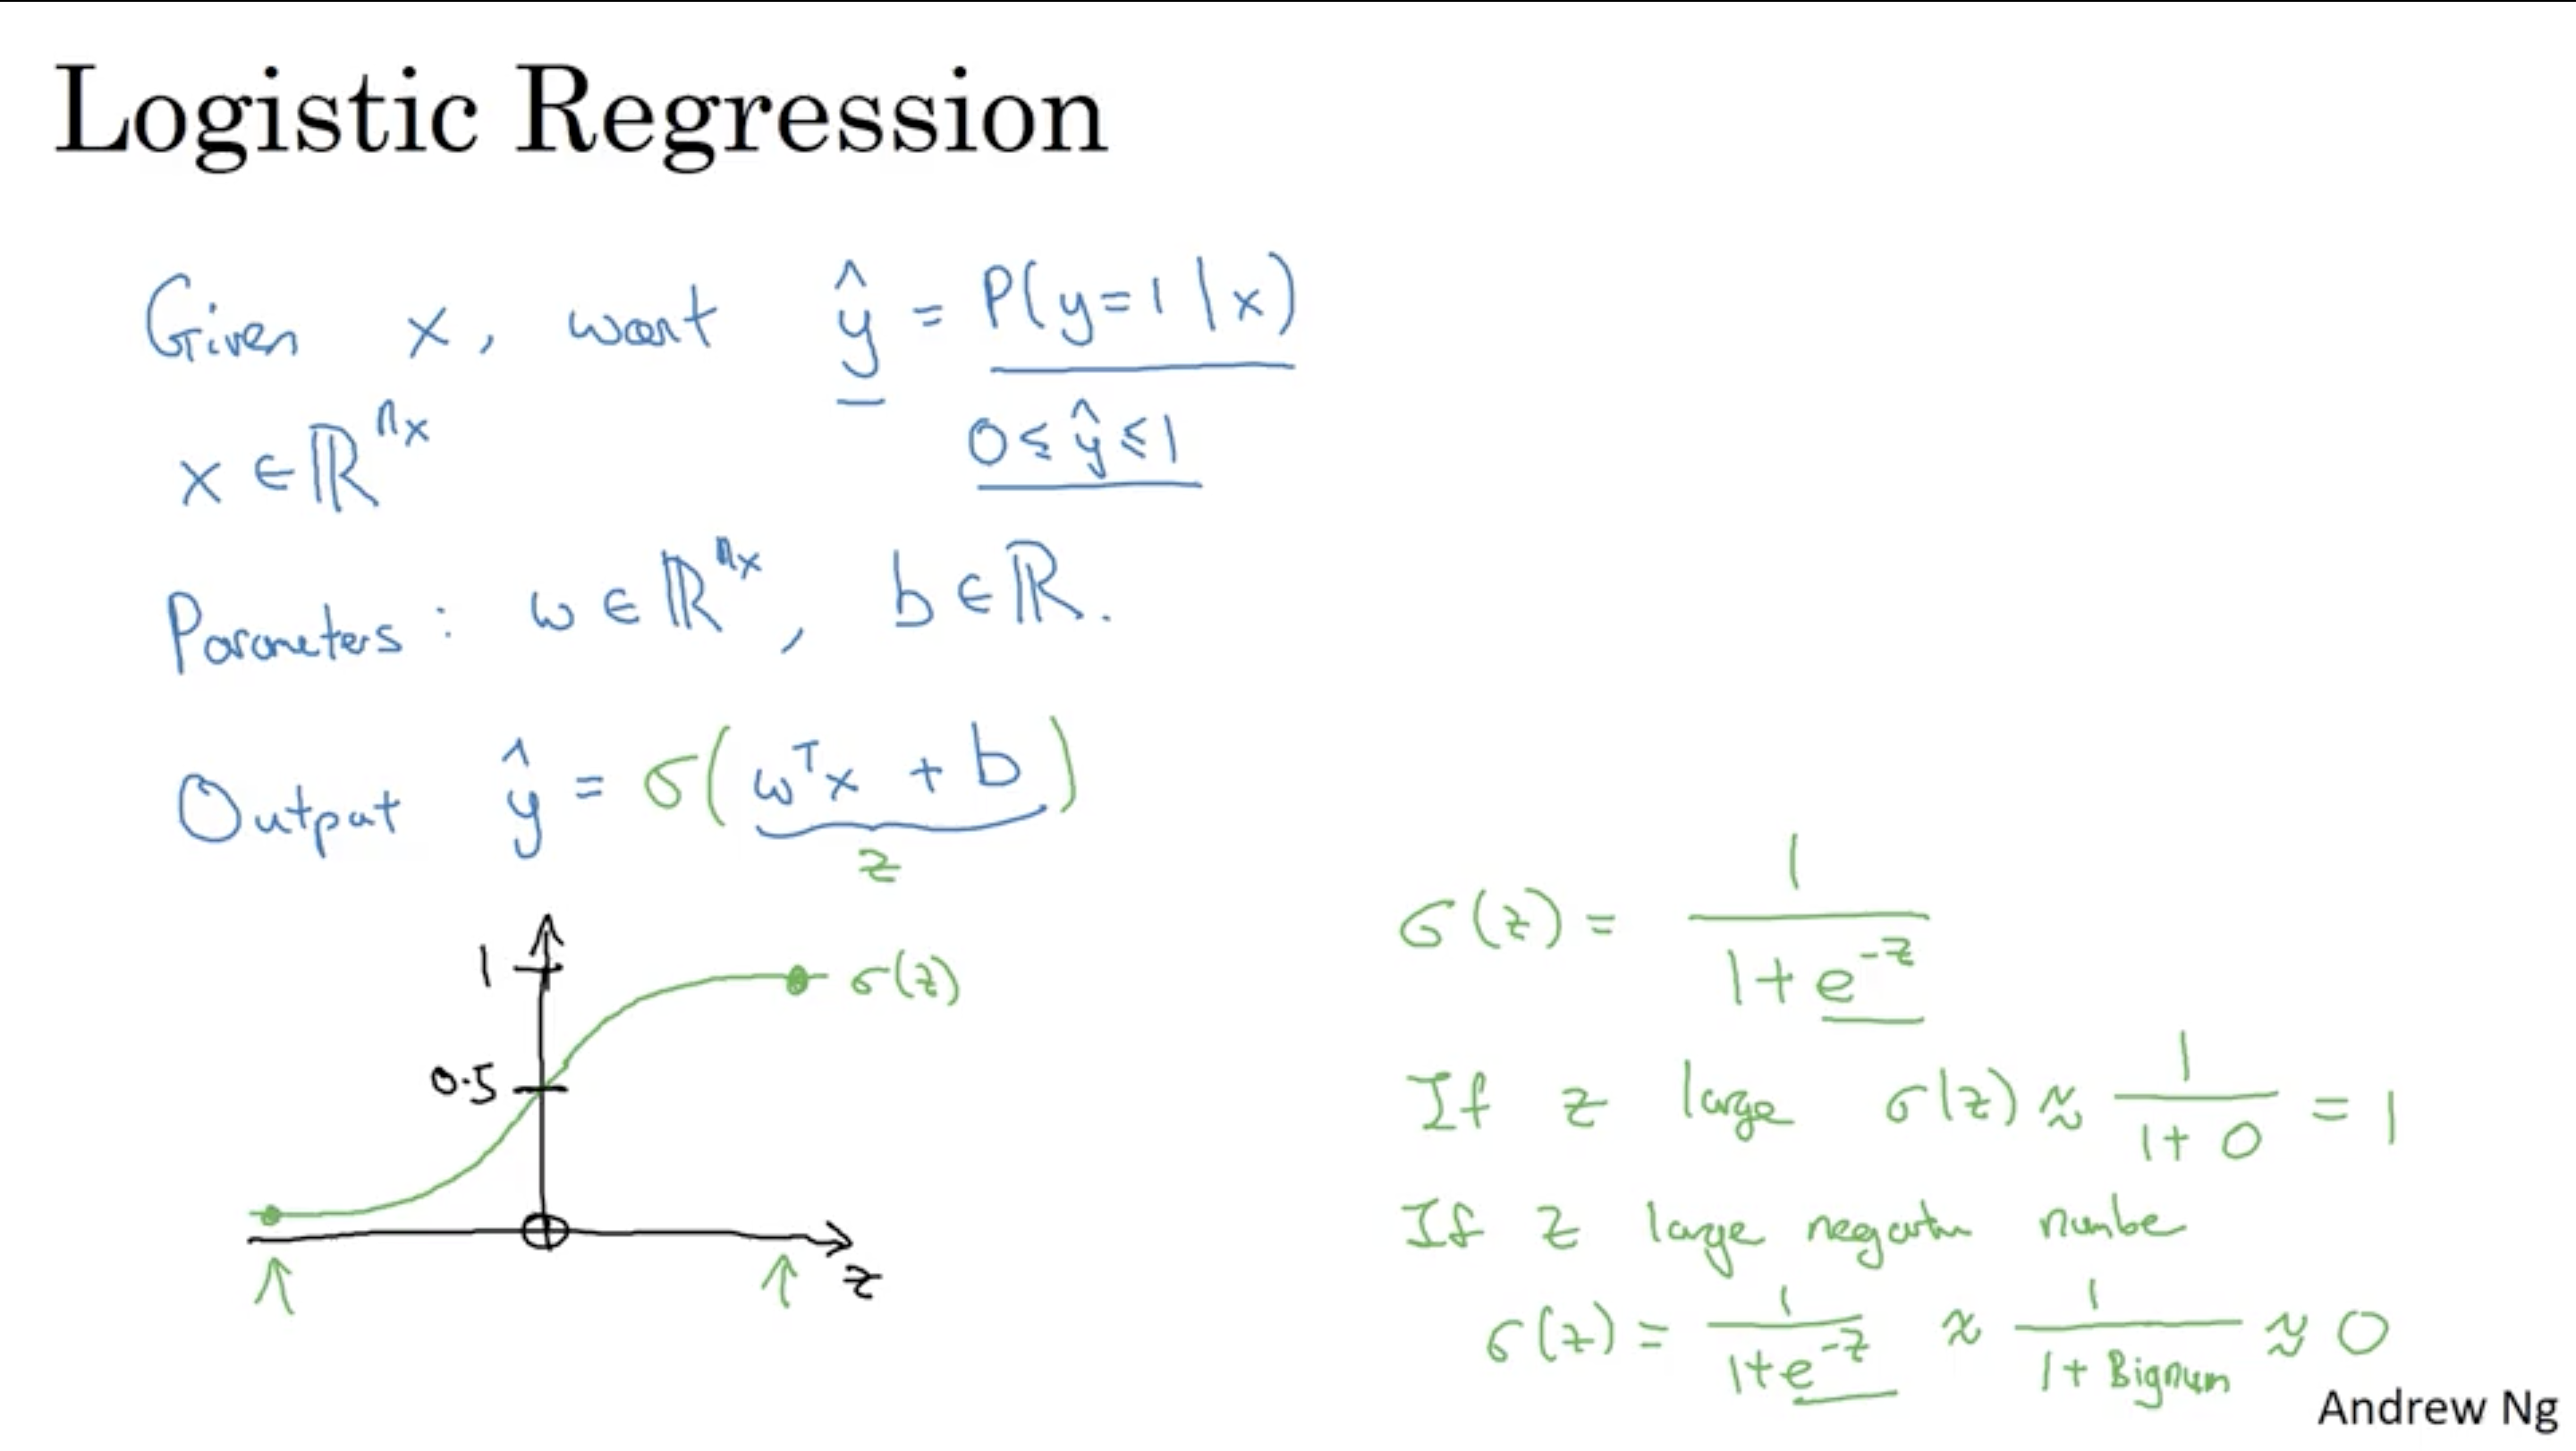 Logistic Regression
Given x, want ŷ = P(y=1|x)
0≤ŷ≤1
x ∈ ℝ^nx
Parameters: ω ∈ ℝ^nx, b ∈ ℝ.
Output ŷ = σ(ω^T x + b)
z
1
σ(z)
0.5
z
σ(z) = 1/(1+e^-z)
If z large σ(z) ≈ 1/(1+0) = 1
If z large negative numbe
σ(z) = 1/(1+e^-z) ≈ 1/(1+Bignum) ≈ 0
Andrew Ng